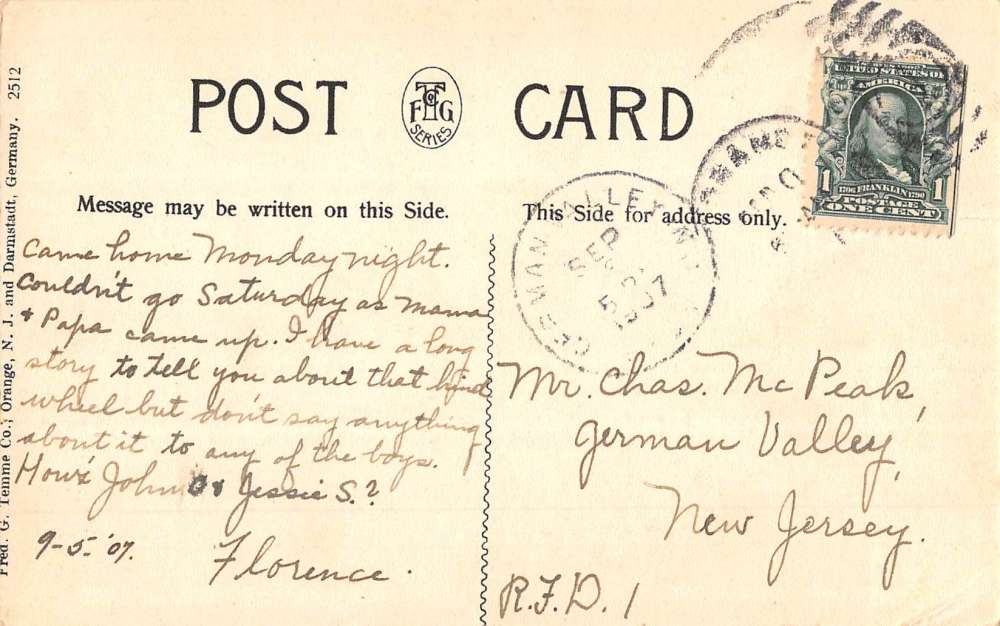 POST CARD
F T Co G
SERIES
Message may be written on this Side.
This Side for address only.
Fred. G. Temme Co.; Orange, N. J. and Darmstadt, Germany. 2512
came home Monday night.
Couldn't go Saturday as Mama
& Papa came up. I have a long
story to tell you about that hind
wheel but don't say anything
about it to any of the boys.
How's John O & Jessie S.?
9-5-'07.
Florence.
GERMAN VALLEY N.J.
SEP
5
1907
UNITED STATES OF
AMERICA
1706 FRANKLIN 1790
1 POSTAGE 1
ONE CENT
Mr. Chas. Mc Peak,
German Valley,
New Jersey.
R.F.D. 1